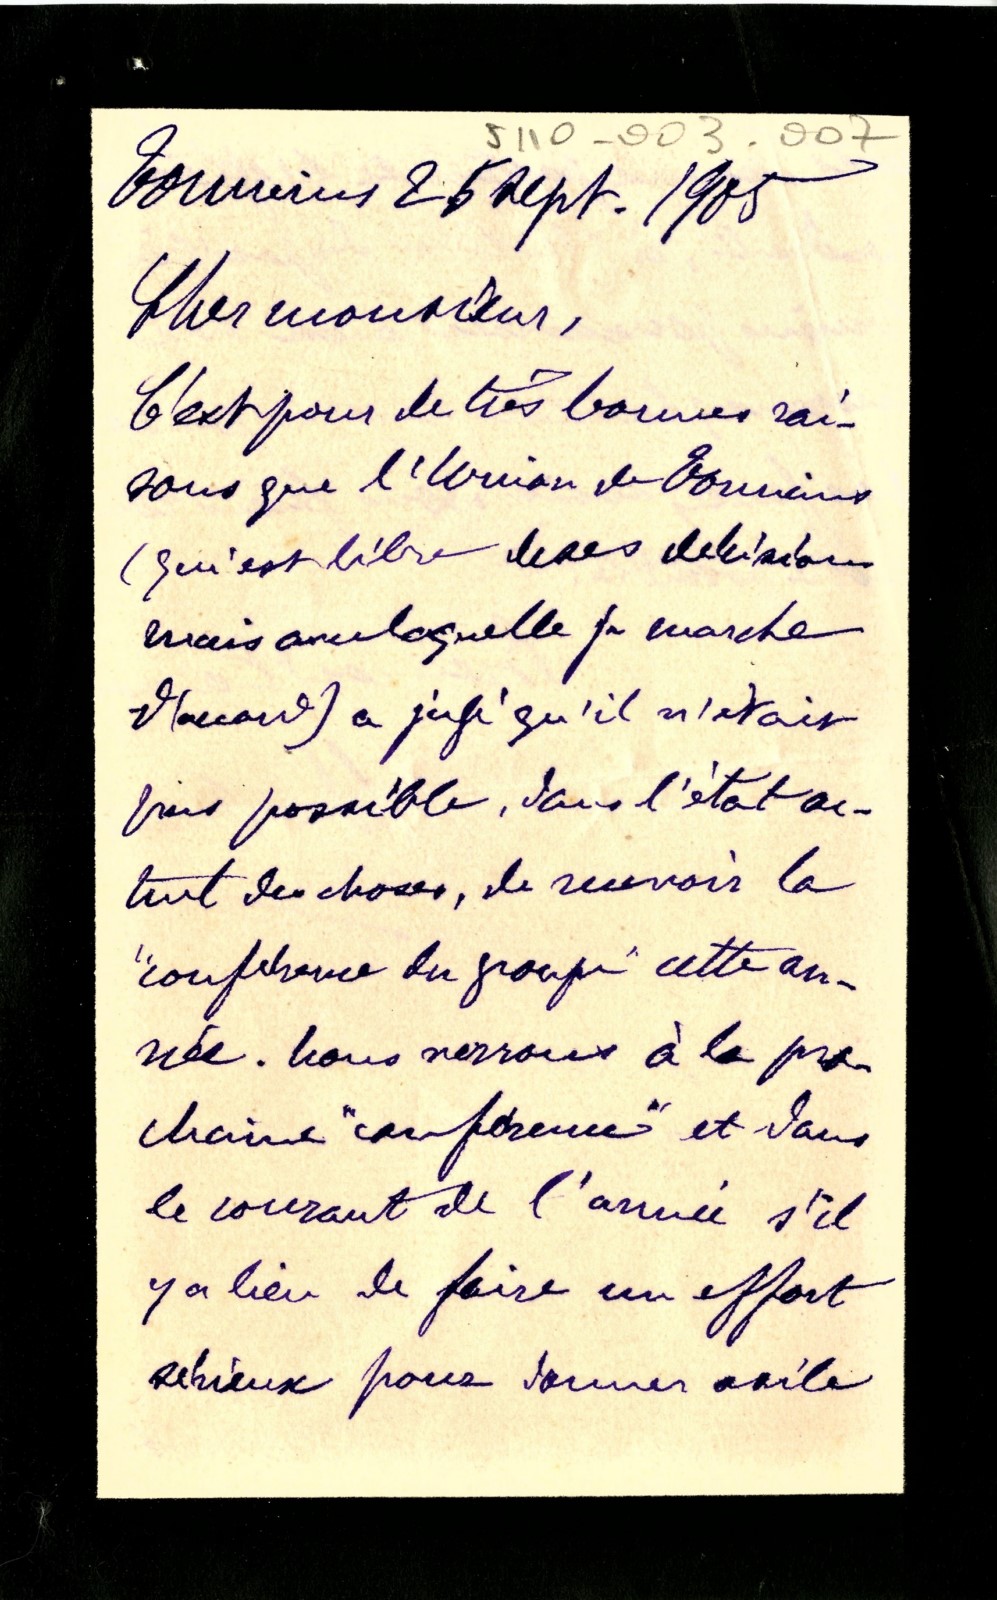 5110-003.007
Tonneins 25 sept. 1905
Cher monsieur,
C'est pour de très bonnes rai-
sons que l'Union de Tonneins
(qui est libre de ses décisions
mais avec laquelle je marche
d'accord) a jugé qu'il n'était
pas possible, dans l'état ac-
tuel des choses, de recevoir la
"conférence du groupe" cette an-
née. Nous verrons à la pro-
chaine "conférence" et dans
le courant de l'année s'il
y a lieu de faire un effort
sérieux pour donner asile